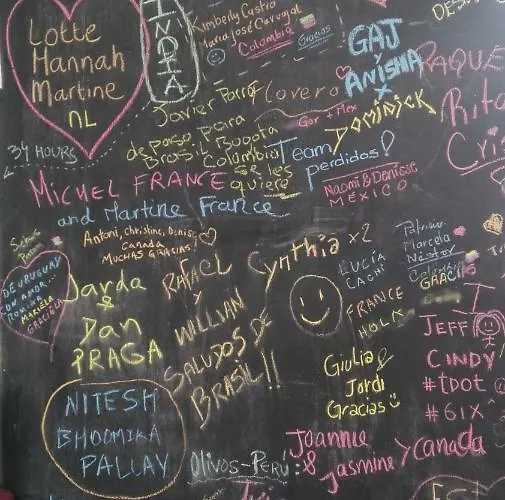 Lotte
Hannah
Martine
NL
INDIA
Kimberly Castro
Maria José Carvajal
Colombia
Gracias
GAJ
&
ANISHA
X
DOMINICK
RAQUE
Rita
Cris
Javier Parra
de paso para
Brasil Bogota
Colombia
se les
quiere
Team
perdidos!
34 HOURS
Naomi & Denisse
MEXICO
MICHEL FRANCE
and Martine France
Antoni, Christine, Denise
Canada
MUCHAS GRACIAS!
DE URUGUAY
CON AMOR
ROMINA
MARIELA
GRACIELA
Jarda
&
Dan
PRAGA
RAFAEL
y
WILLIAN
SALUDOS DE
BRASIL!!
Cynthia x2
LUCÍA
CACHI
FRANCE
HOLA
Patricia
Marcela
Néstor
Colombia
GRACIAS
I
JEFF
CINDY
#tDOt
#6IX
Giulia &
Jordi
Gracias
NITESH
BHOOMIKA
PALLAV
Olivos-Perú:
Joannie
&
Jasmine y Canada